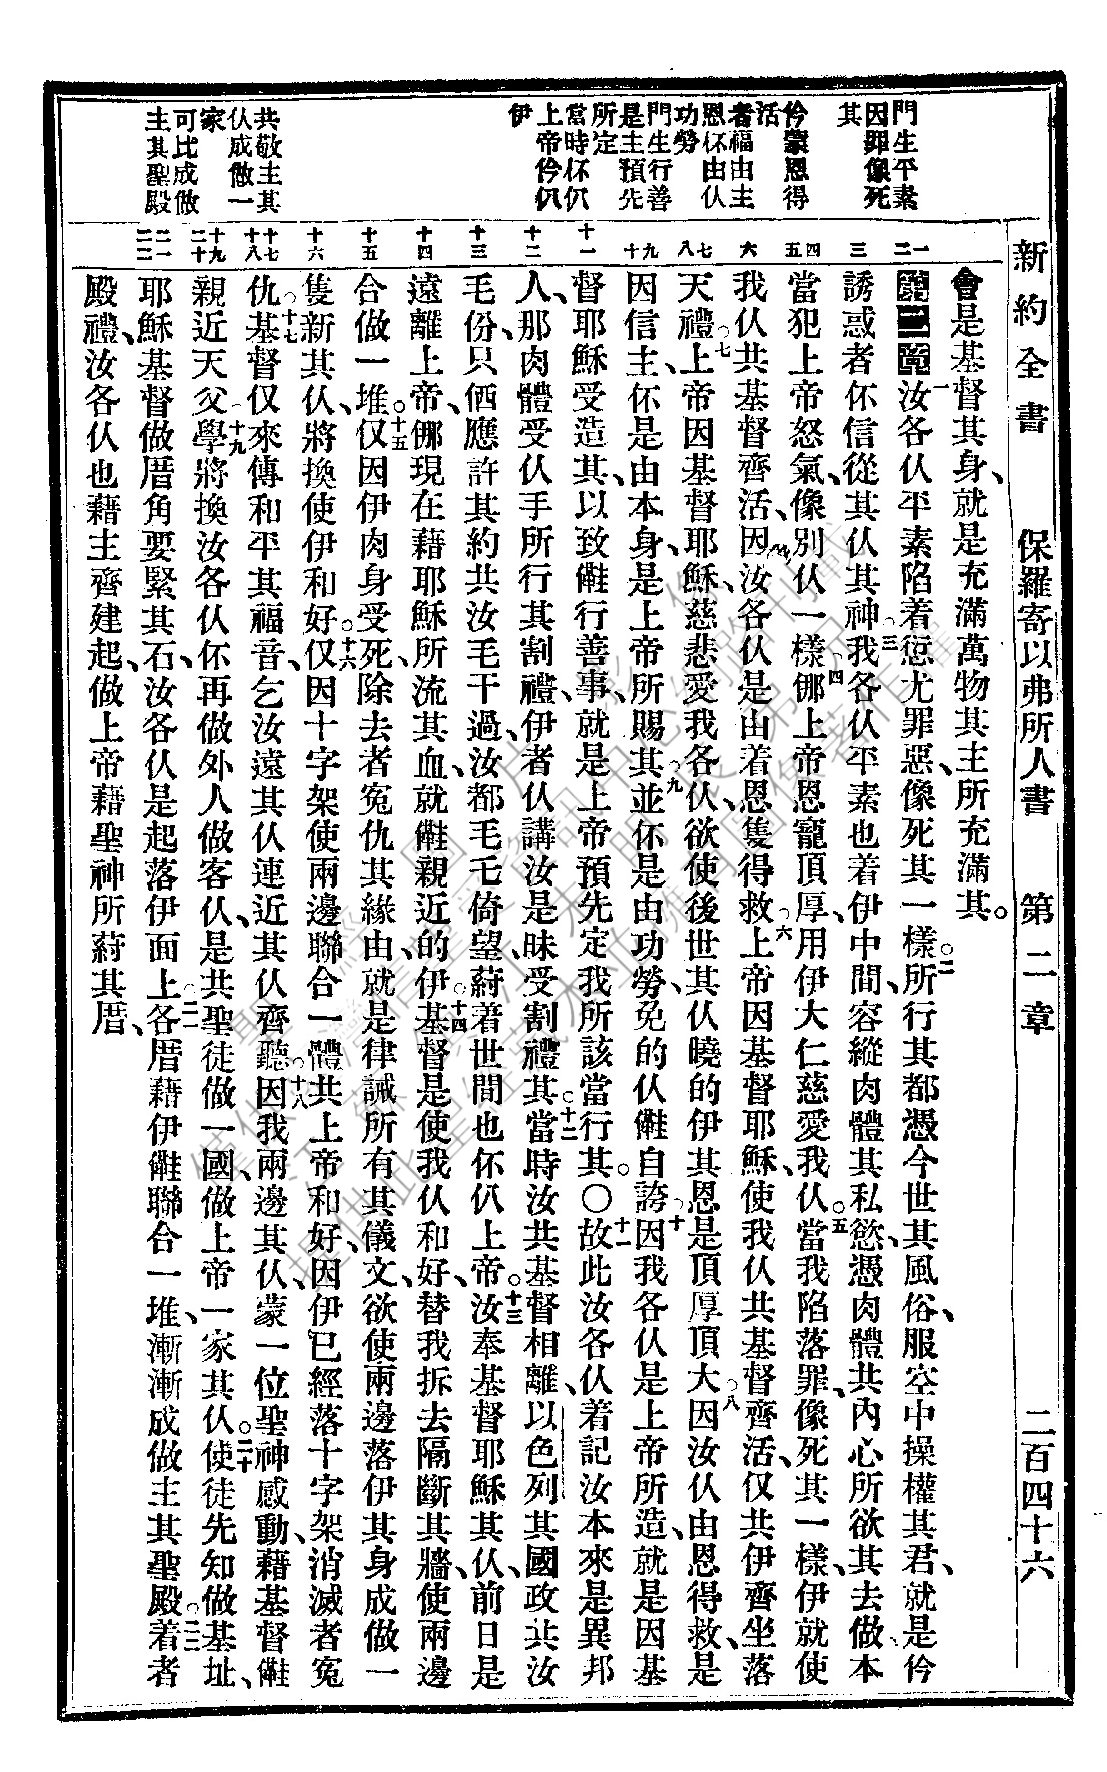 新約全書 保羅寄以弗所人書 第二章 二百四十六
門生平素
因罪像死
其
仱蒙恩得
活
者福由主
恩伓由仫
功勞
門生行善
是主預先
所定
當時伓仈
上帝仱仈
伊
共敬主其
仫成做一
家
可比成做
主其聖殿
一二
三
四五
六
七八
九十
十一
十二
十三
十四
十五
十六
十七十八
十九二十
二一二二
會是基督其身、就是充滿萬物其主所充滿其。
第二章 一汝各仫平素陷着愆尤罪惡、像死其一樣。二所行其都憑今世其風俗、服空中操權其君、就是仱
誘惑者伓信從其仫其神。三我各仫平素也着伊中間、容縱肉體其私慾、憑肉體共內心所欲其去做、本
當犯上帝怒氣、像別仫一樣。四㑚上帝恩寵頂厚、用伊大仁慈愛我仫。五當我陷落罪、像死其一樣、伊就使
我仫共基督齊活、因汝各仫是由着恩隻得救。六上帝因基督耶穌、使我仫共基督齊活、仅共伊齊坐落
天禮。七上帝因基督耶穌、慈悲愛我各仫、欲使後世其仫曉的伊其恩是頂厚頂大。八因汝仫由恩得救、是
因信主、伓是由本身、是上帝所賜其。九並伓是由功勞、免的仫㒰自誇。十因我各仫是上帝所造、就是因基
督耶穌受造其、以致㒰行善事、就是上帝預先定我所該當行其。〇十一故此汝各仫着記汝本來是異邦
人、那肉體受仫手所行其割禮、伊者仫講汝是昧受割禮其。十二當時汝共基督相離、以色列其國政共汝
毛份、只仾應許其約共汝毛干過、汝都毛乇倚望、葤着世間也伓仈上帝。十三汝奉基督耶穌其仫、前日是
遠離上帝、㑚現在藉耶穌所流其血、就㒰親近的伊。十四基督是使我仫和好、替我拆去隔斷其牆、使兩邊
合做一堆。十五仅因伊肉身受死、除去者冤仇其緣由、就是律誡所有其儀文、欲使兩邊落伊其身成做一
隻新其仫、將換使伊和好。十六仅因十字架使兩邊聯合一體共上帝和好、因伊已經落十字架消滅者冤
仇。十七基督仅來傳和平其福音、乞汝遠其仫連近其仫齊聽。十八因我兩邊其仫、蒙一位聖神感動、藉基督㒰
親近天父。十九學將換汝各仫伓再做外人做客仫、是共聖徒做一國、做上帝一家其仫。二十使徒先知做基址、
耶穌基督做厝角要緊其石、汝各仫是起落伊面上。二一各厝藉伊㒰聯合一堆、漸漸成做主其聖殿。二二着者
殿禮、汝各仫也藉主齊建起、做上帝藉聖神所葤其厝、